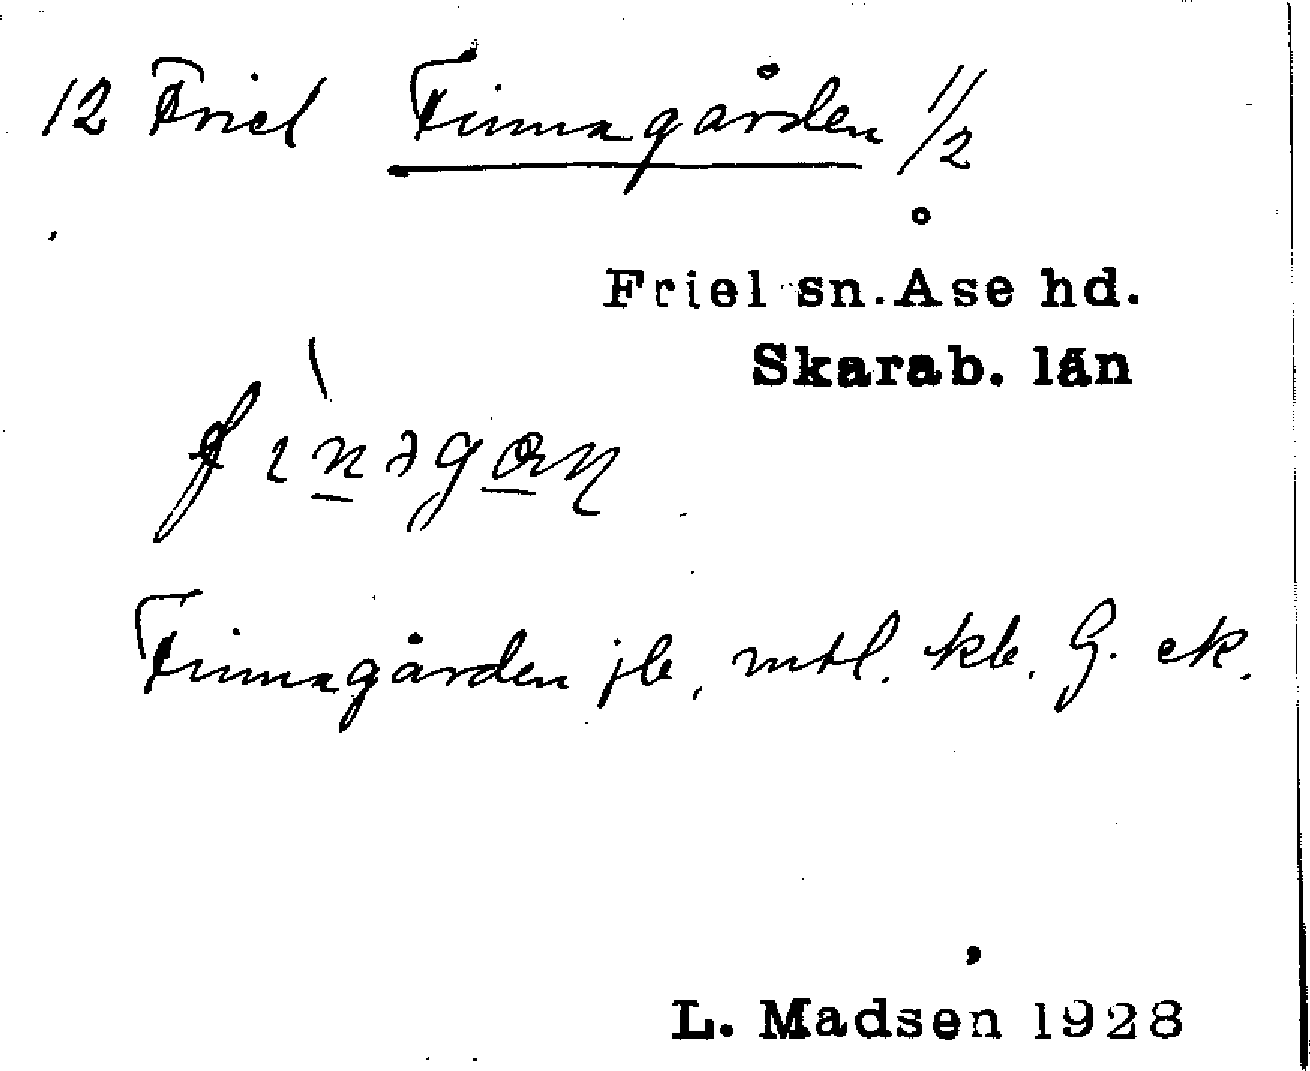 12 Friel Finnagården 1/2
Friel sn. Åse hd.
Skarab. län
Finnagården jb, mtl. kb. G. ek.
L. Madsen 1928